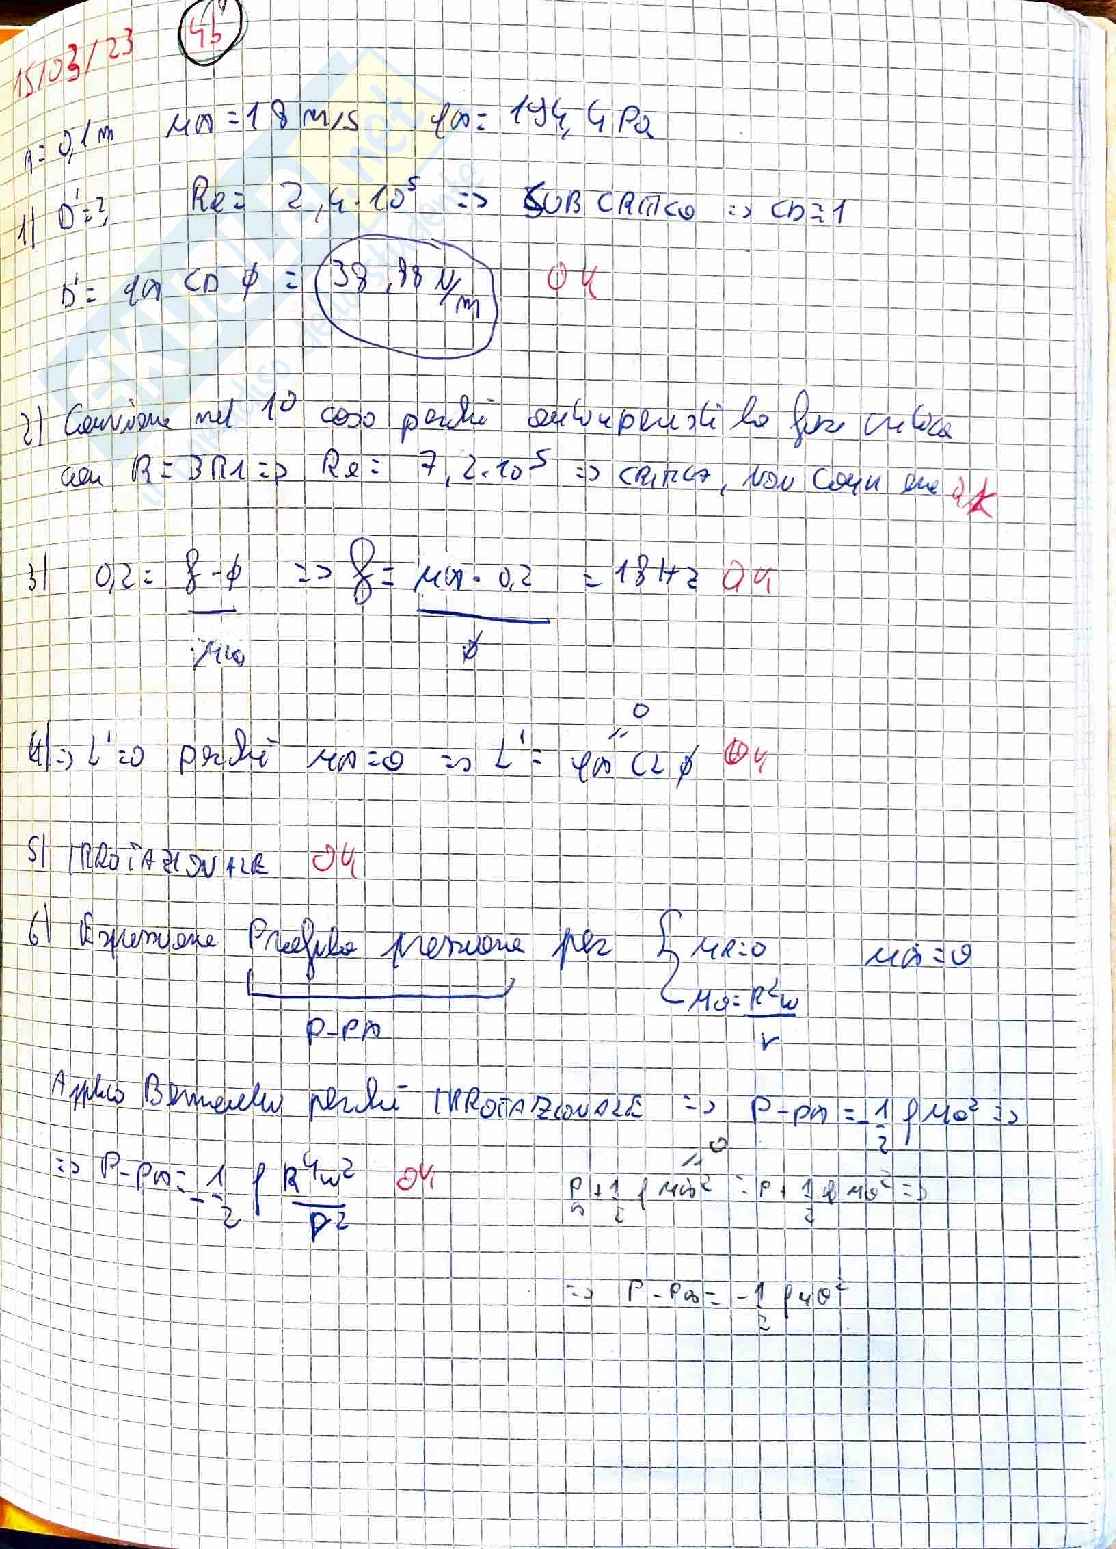 15/03/23 4b
R=0,1m u∞=18m/s q∞=194,4Pa
1) D'=? Re= 2,4·10⁵ => SUBCRITICO => CD≅1
D'= q∞ CD ϕ = 38,88 N/m OK
2) Conviene nel 1° caso perché crisi
con R=3R1=> Re= 7,2·10⁵ => CRITICA, NON CONVIENE OK
3) 0,2= f·ϕ/u∞ => f= u∞·0,2/ϕ = 18Hz OK
0
4)=> L'=0 perché u∞=0 => L'= q∞ CL ϕ OK
5) IRROTAZIONALE OK
6) Espressione pressione per { uR=0 u∞=0
uθ=R²ω/r
P-P∞
Applico Bernoulli perché IRROTAZIONALE => P-P∞=-1/2 ρuθ² =>
=> P-P∞=-1/2 ρ R⁴ω²/r² OK
0
P∞+1/2 ρu∞² =P+1/2 ρuθ² =>
=> P-P∞= -1/2 ρuθ²